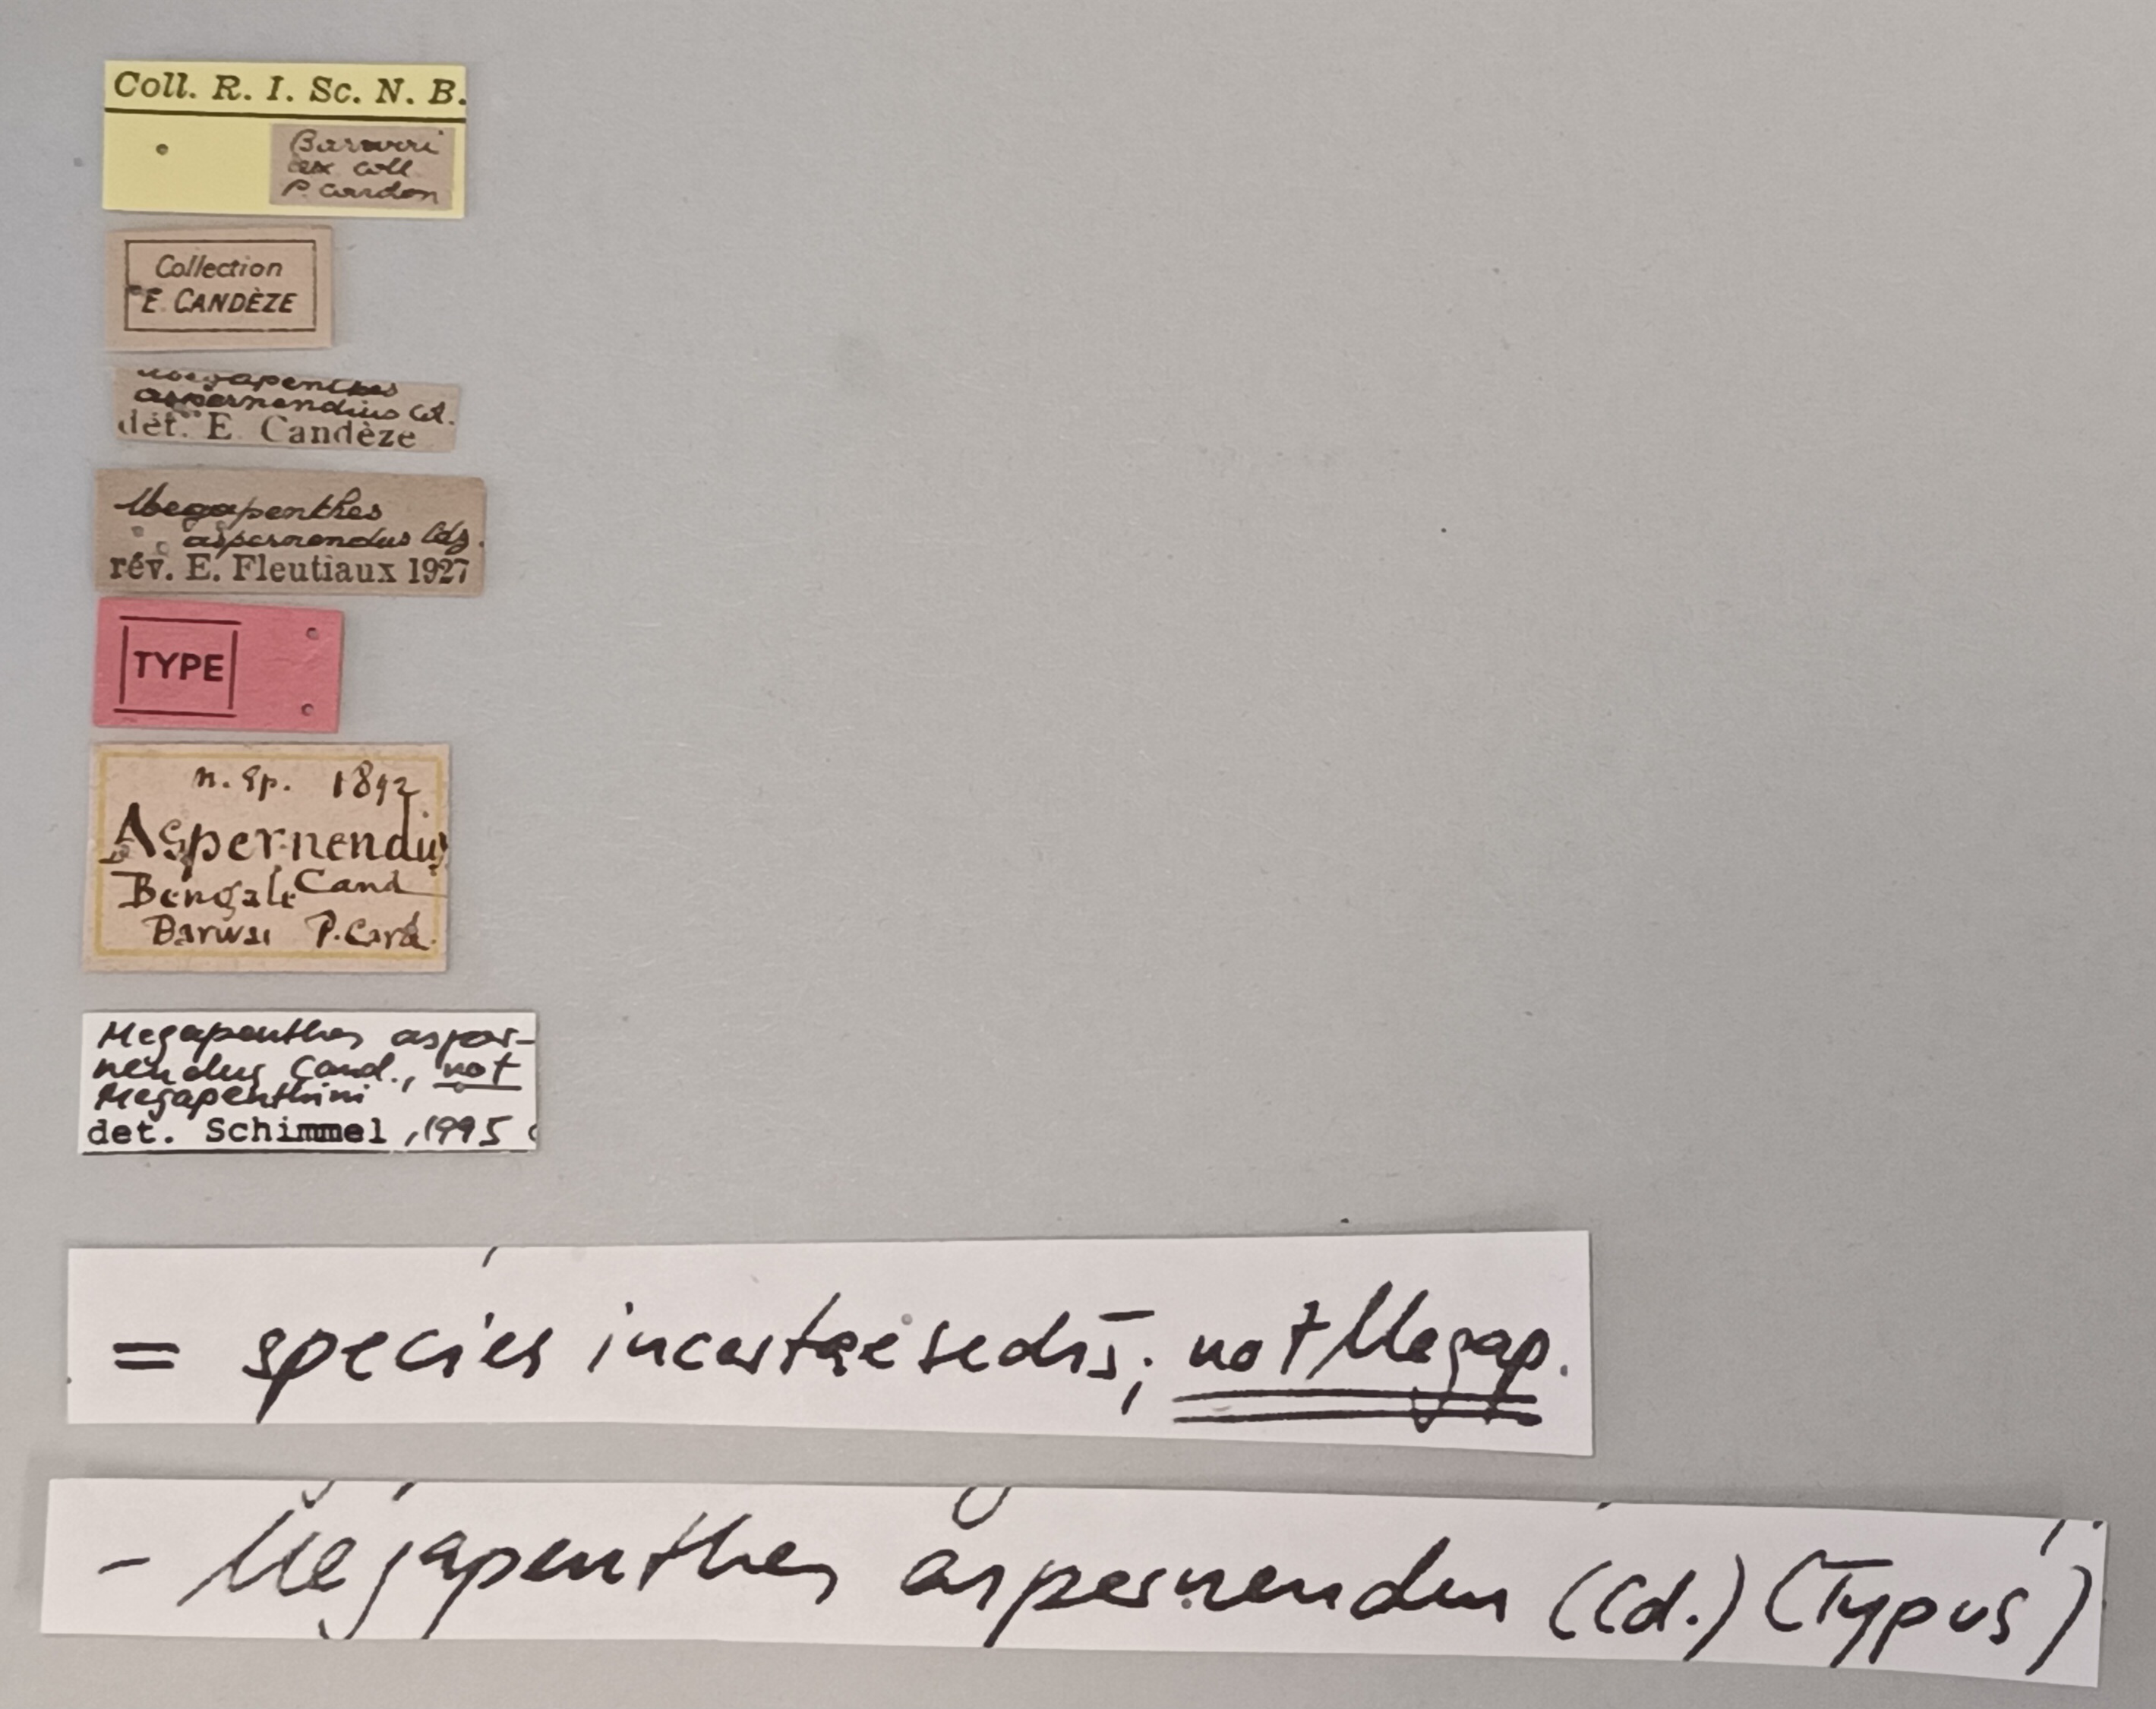 Coll. R. I. Sc. N. B.
Barwai
ex coll
P. Cardon
Collection
E. CANDÈZE
Megapenthes
aspernendus Cd.
dét. E. Candèze
Megapenthes
aspernendus Cdz.
rév. E. Fleutiaux 1927
TYPE
n. sp. 1892
Aspernendus
Bengale Cand
Barwai P. Card.
Megapenthes asper-
nendus Cand., not
Megapenthini
det. Schimmel, 1995
= species incertae sedis; not Megap.
- Megapenthes aspernendus (Cd.) (Typus)